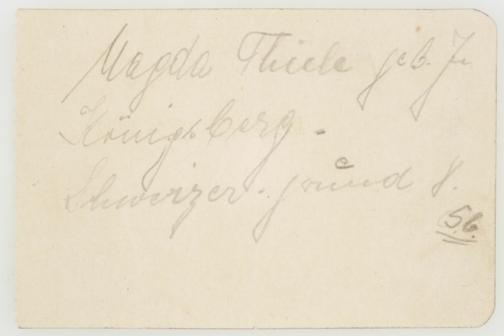 Magda Thiele geb. J.
Königsberg.
Schweizer-grund 8.
56.